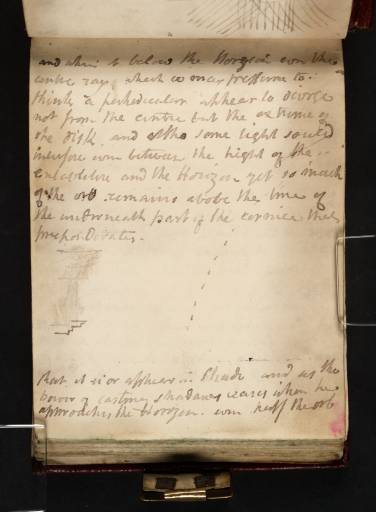 and when it below the Horizon even the
centre rays which we may presume to
think a perpedicular appear to diverge
not from the centre but the extreme of
the disk and altho some light should
interfere even between the hight of the
entablature and the Horizon yet so much
of the orb remains above the line of
the underneath part of the cornice that
preponderates.
that it is or appears in Shade and as the
power of casting shadows ceases when he
approaches the Horizon. even half the orb